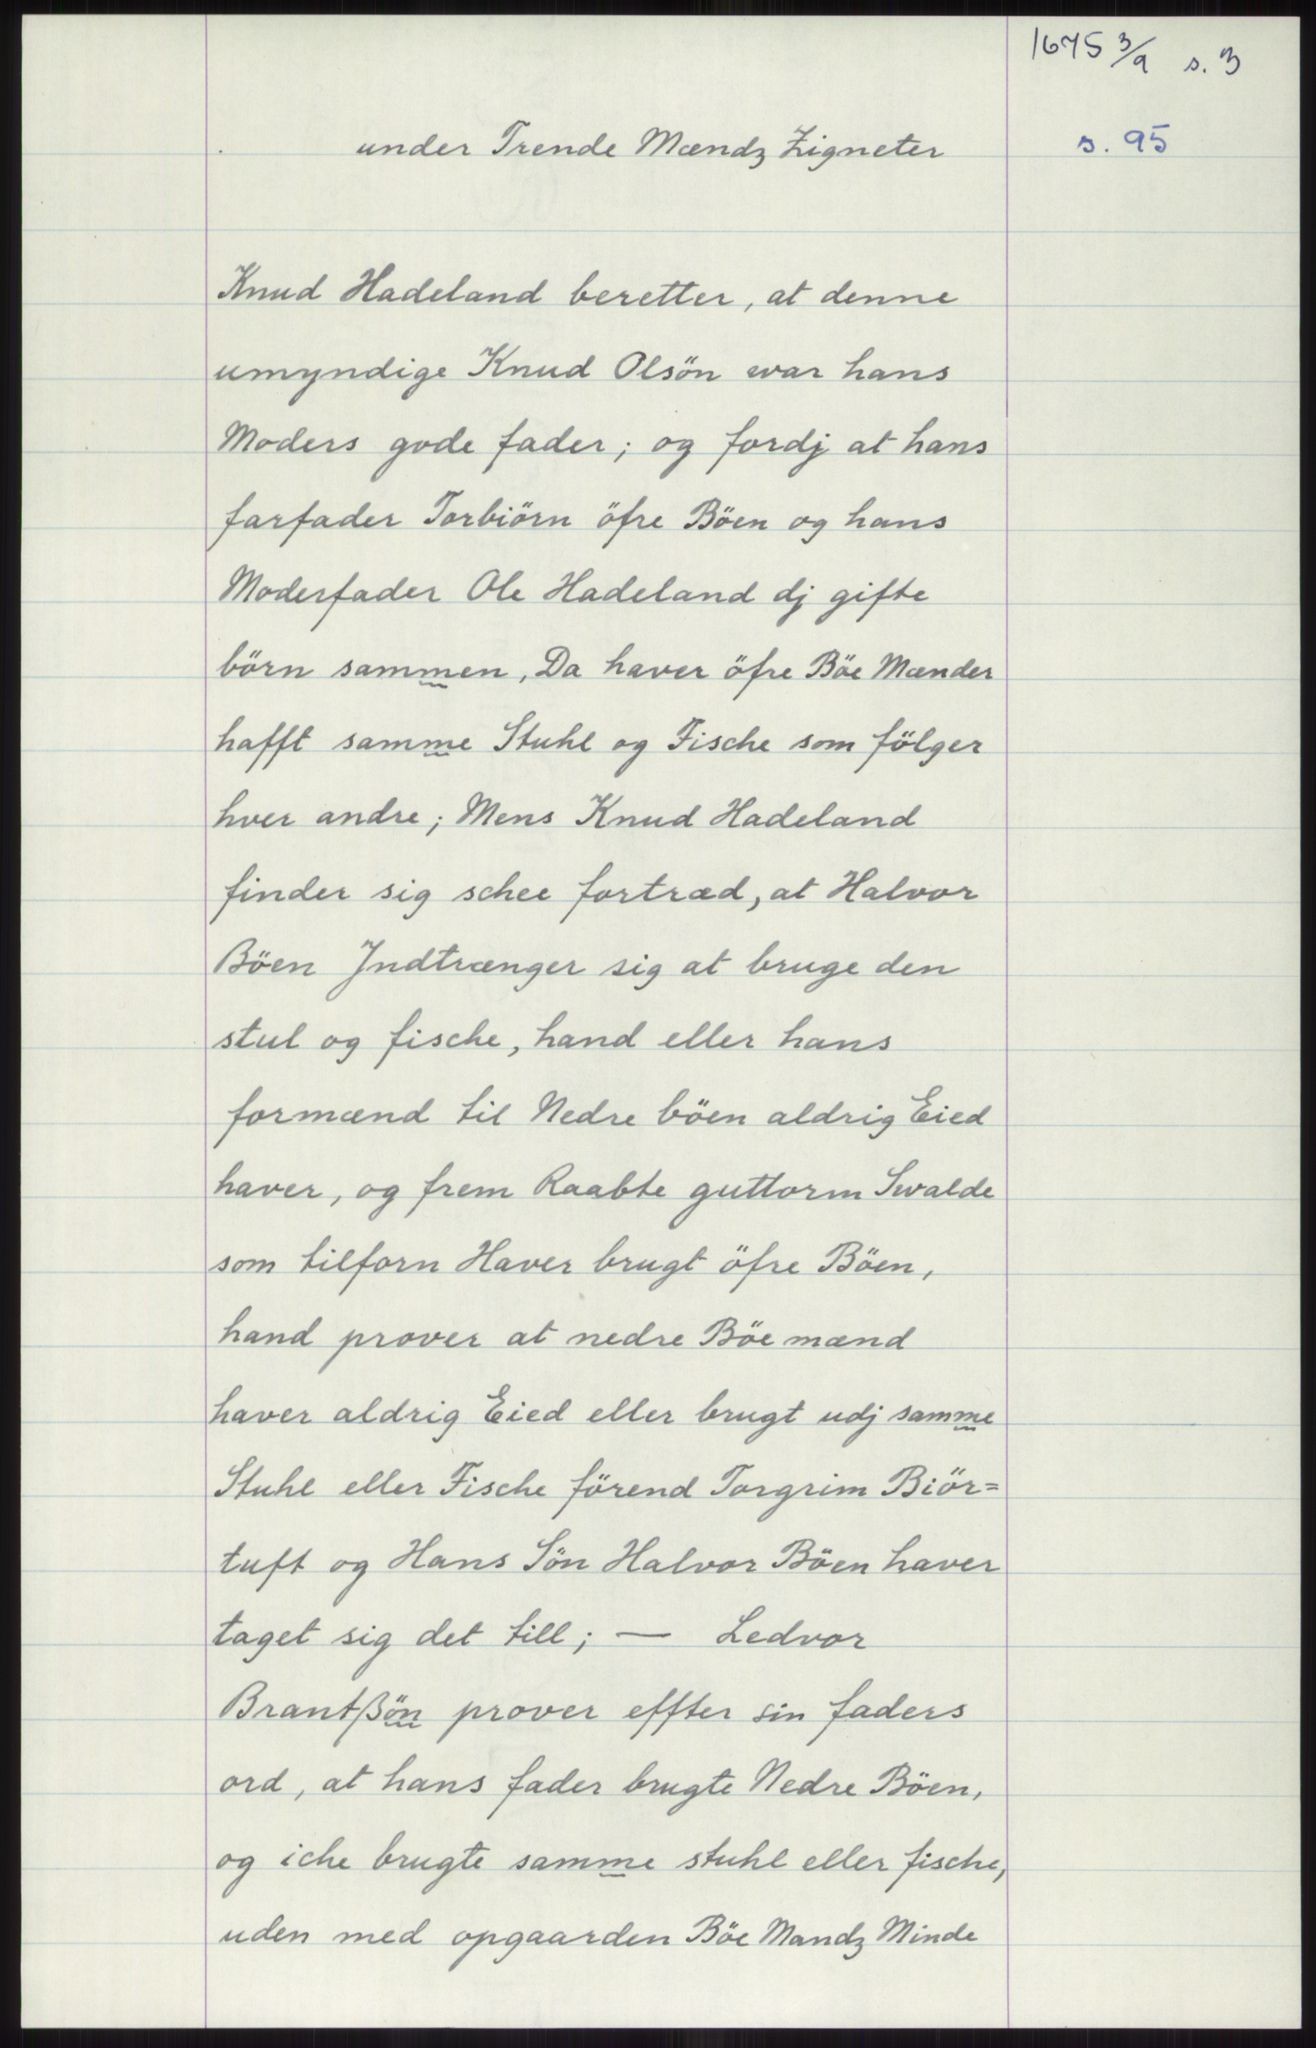 1675 3/9 s. 3
under Trende Mændz Zigneter
s. 95
Knud Hadeland beretter, at denne
umyndige Knud Olsön war hans
Moders gode fader; og fordj at hans
farfader Torbiörn öfre Böen og hans
Moderfader Ole Hadeland dj gifte
börn sammen, Da haver öfre Böe Mænder
hafft samme Stuhl og Fische som fölger
hver andre; Mens Knud Hadeland
finder sig schee fortræd, at Halvor
Böen Jndtrænger sig at bruge den
stul og fische, hand eller hans
formænd til Nedre böen aldrig Eied
haver, og frem Raabte guttorm Swalde
som tilforn Haver brugt öfre Böen,
hand prover at nedre Böe mænd
haver aldrig Eied eller brugt udj samme
Stuhl eller Fische förend Torgrim Biör=
tuft og Hans Sön Halvor Böen haver
taget sig det till; — Ledvor
Brantßön prover effter sin faders
ord, at hans fader brugte Nedre Böen,
og iche brugte samme stuhl eller fische,
uden med opgaarden Böe Mandz Minde